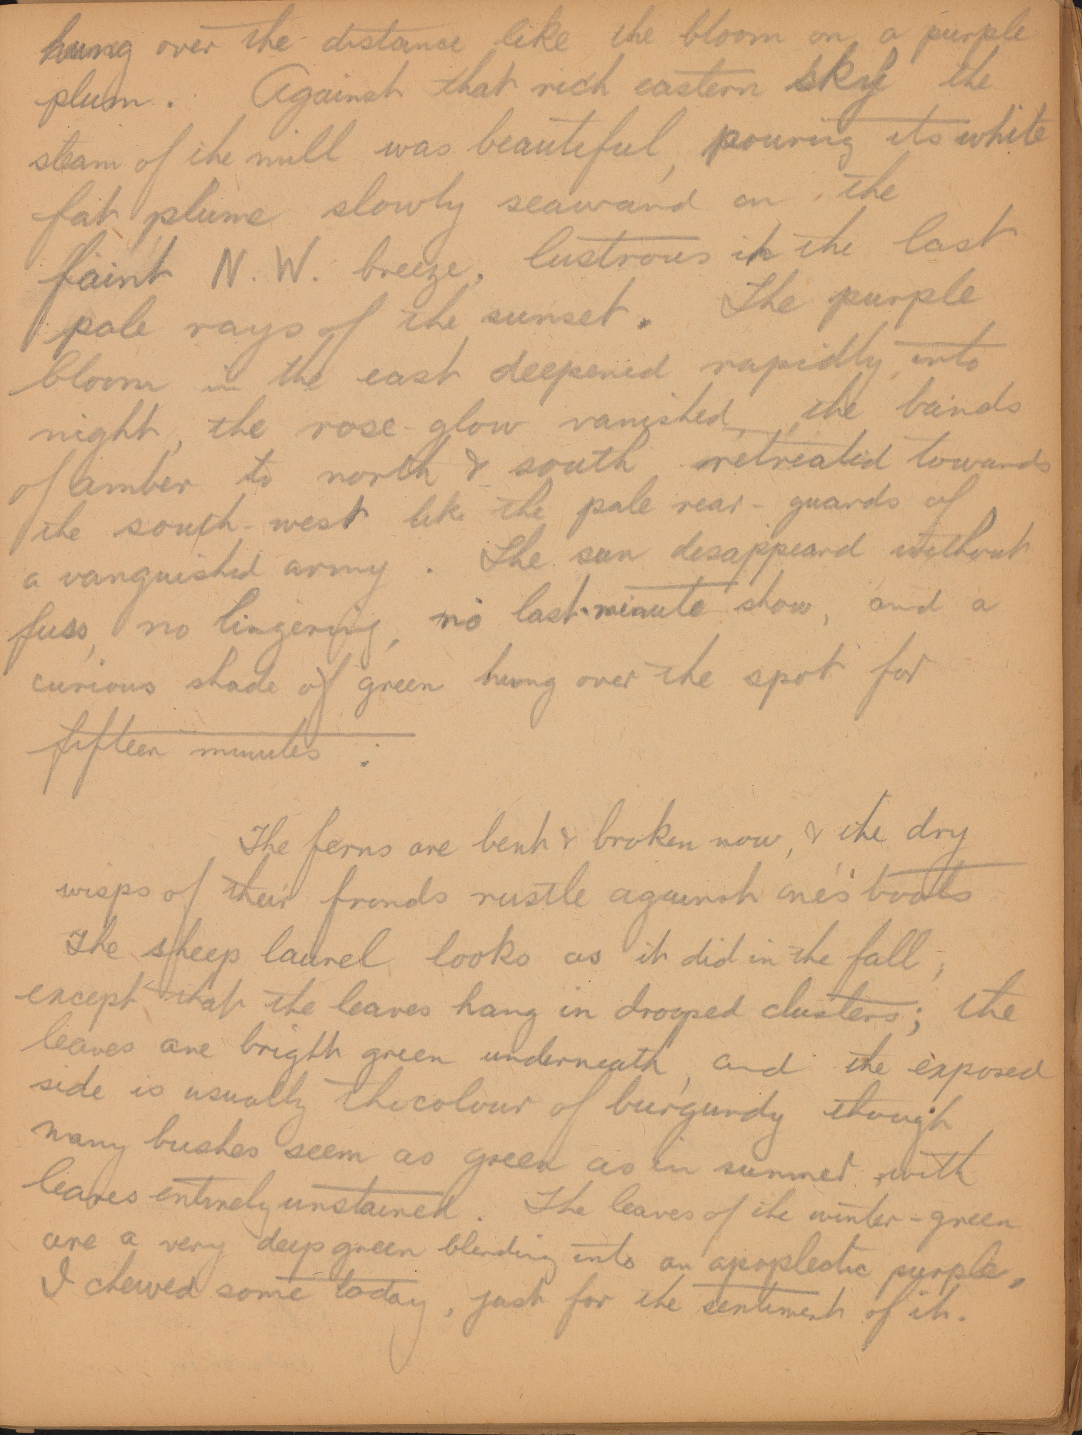 hung over the distance like the bloom on a purple
plum. Against that rich eastern sky the
steam of the mill was beautiful, pouring its white
fat plume slowly seaward on the
faint N.W. breeze, lustrous in the last
pale rays of the sunset. The purple
bloom in the east deepened rapidly into
night, the rose-glow vanished, the bands
of amber to north & south retreated towards
the south-west like the pale rear-guards of
a vanquished army. The sun disappeard without
fuss, no lingering, no last-minute show, and a
curious shade of green hung over the spot for
fifteen minutes.
The ferns are bent & broken now, & the dry
wisps of their fronds rustle against one's boots
The sheep laurel looks as it did in the fall,
except that the leaves hang in drooped clusters; the
leaves are brigth green underneath, and the exposed
side is usually the colour of burgundy though
many bushes seem as green as in summer, with
leaves entirely unstained. The leaves of the winter-green
are a very deep green blending into an apoplectic purple,
I chewed some today, just for the sentiment of it.